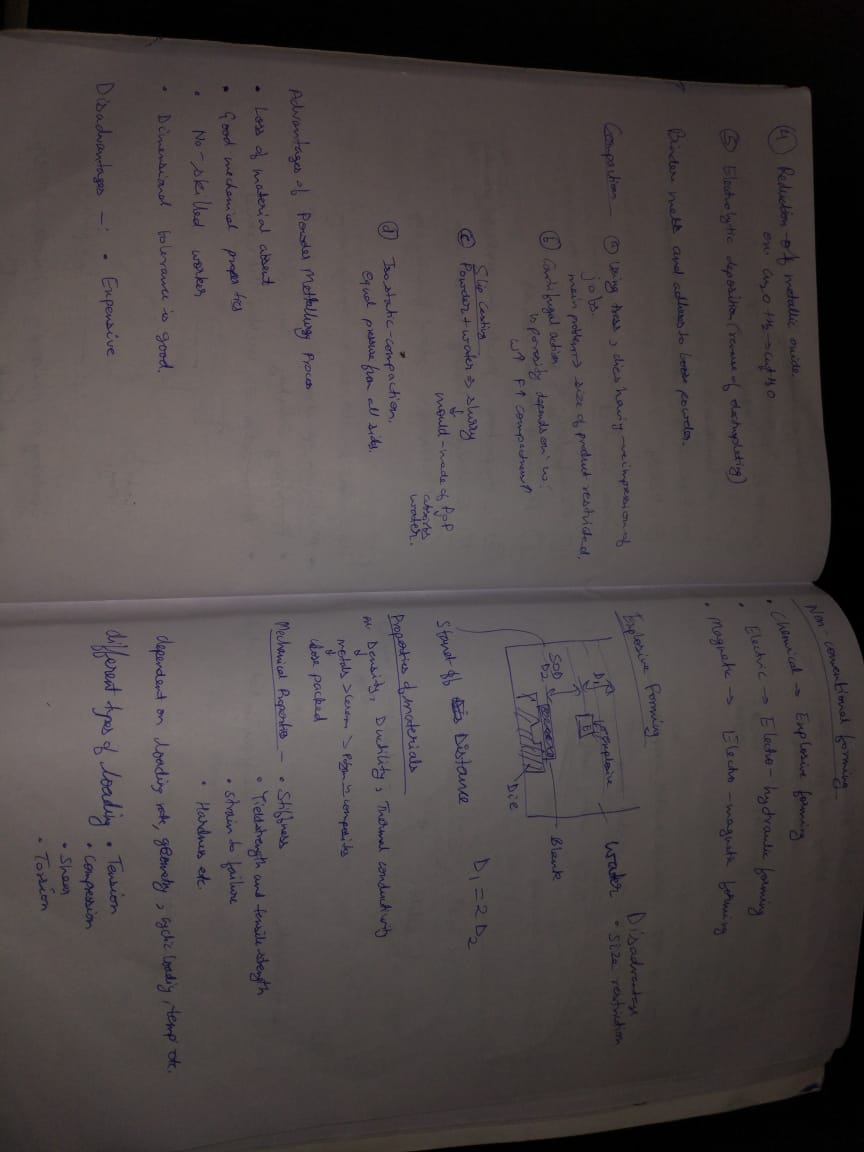 ④ Reduction of metallic oxide
ex: Cu2O + H2 → Cu + H2O
⑤ Electrolytic deposition (reverse of electroplating)
Binder melts and adheres to loose powder.
Compaction
ⓐ Using press, dies having -ve impression of
jobs.
main problem → size of product restricted.
ⓑ Centrifugal action
↳ porosity depends on ω.
ω↑ F↑ compactness↑
Slip Casting
ⓒ Powder + water ⇒ slurry
↓
mould - made of pop
absorbs
water.
ⓓ Isostatic-compaction.
equal pressure from all sides.
Advantages of Powder Mettallurgy Process
• Loss of material absent
• Good mechanical properties
• No-skilled worker
• Dimensional tolerance is good.
Disadvantages -: • Expensive
Non-conventional forming
• Chemical → Explosive forming
• Electric → Electro-hydraulic forming
• Magnetic → Electro-magnetic forming
Explosive Forming
Disadvantage
• Size restriction
Water
D1
Explosive
E
SOD
D2
Blank
Die
D1 = 2 D2
Stand off Distance
Properties of materials
Density, Ductility, Thermal conductivity
↓
metals > Ceram > Polym ≃ composites
↓
close packed
Mechanical Properties - • Stiffness
• Yield strength and tensile-strength
• strain to failure
• Hardness etc.
dependent on loading rate, geometry, cyclic loading, temp etc.
different types of loading • Tension
• Compression
• Shear
• Torsion